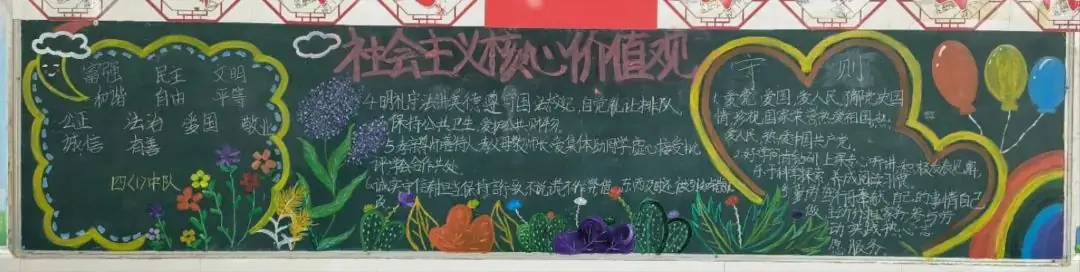 社会主义核心价值观
富强 民主 文明
和谐 自由 平等
公正 法治 爱国 敬业
诚信 有善
四(1)中队
4.明礼守法讲美德遵守国法校纪,自觉礼让排队,
保持公共卫生,爱护公共财物。
5.孝亲尊师善待人孝父母敬师长爱集体助同学虚心接受批
评学会合作共处
6.诚实守信有担当保持言行一致不说谎不作弊借东西及时还
守 则
1.爱党爱国爱人民了解党史国
情,珍视国家荣誉热爱祖国,热
爱人民,热爱中国共产党。
2.好学
乐于科学探索,养成阅读习惯。
自己的事情自己
做主动分担家务参与劳
动实践热心志
愿服务